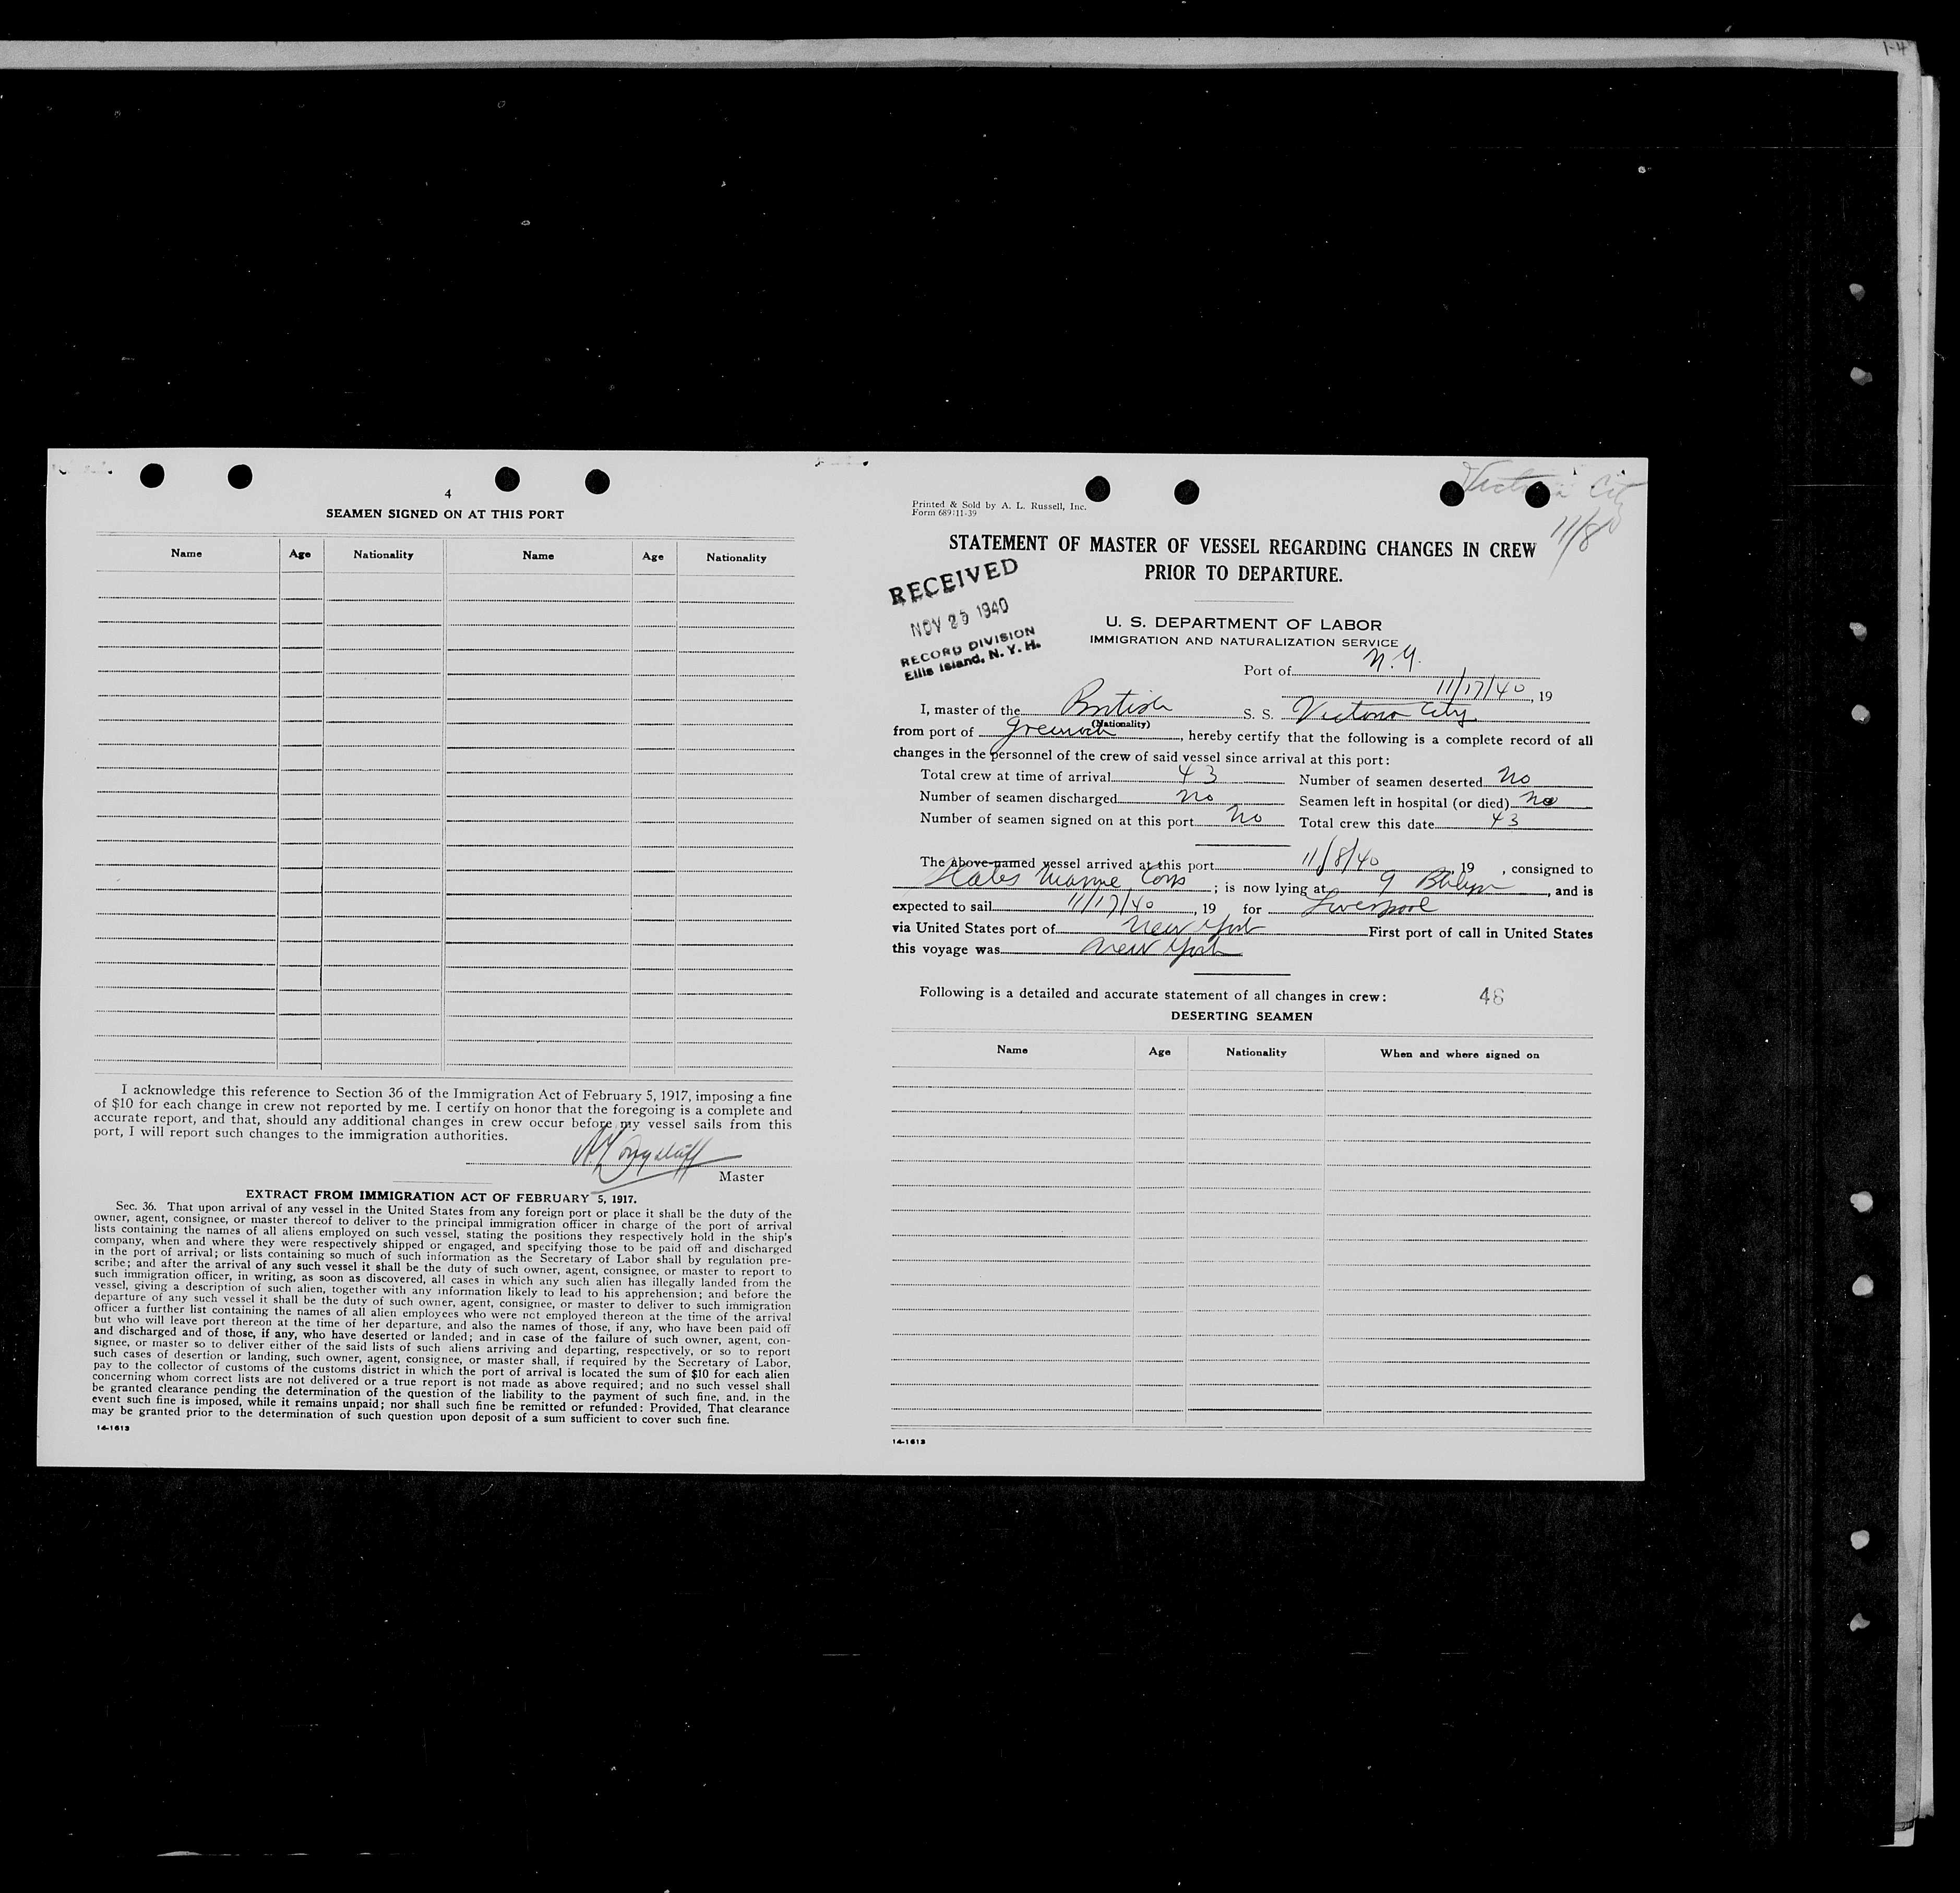 1-4
4
SEAMEN SIGNED ON AT THIS PORT
Name Age Nationality Name Age Nationality
I acknowledge this reference to Section 36 of the Immigration Act of February 5, 1917, imposing a fine
of $10 for each change in crew not reported by me. I certify on honor that the foregoing is a complete and
accurate report, and that, should any additional changes in crew occur before my vessel sails from this
port, I will report such changes to the immigration authorities.
Master
EXTRACT FROM IMMIGRATION ACT OF FEBRUARY 5, 1917.
Sec. 36. That upon arrival of any vessel in the United States from any foreign port or place it shall be the duty of the
owner, agent, consignee, or master thereof to deliver to the principal immigration officer in charge of the port of arrival
lists containing the names of all aliens employed on such vessel, stating the positions they respectively hold in the ship's
company, when and where they were respectively shipped or engaged, and specifying those to be paid off and discharged
in the port of arrival; or lists containing so much of such information as the Secretary of Labor shall by regulation pre-
scribe; and after the arrival of any such vessel it shall be the duty of such owner, agent, consignee, or master to report to
such immigration officer, in writing, as soon as discovered, all cases in which any such alien has illegally landed from the
vessel, giving a description of such alien, together with any information likely to lead to his apprehension; and before the
departure of any such vessel it shall be the duty of such owner, agent, consignee, or master to deliver to such immigration
officer a further list containing the names of all alien employees who were not employed thereon at the time of the arrival
but who will leave port thereon at the time of her departure, and also the names of those, if any, who have been paid off
and discharged and of those, if any, who have deserted or landed; and in case of the failure of such owner, agent, con-
signee, or master so to deliver either of the said lists of such aliens arriving and departing, respectively, or so to report
such cases of desertion or landing, such owner, agent, consignee, or master shall, if required by the Secretary of Labor,
pay to the collector of customs of the customs district in which the port of arrival is located the sum of $10 for each alien
concerning whom correct lists are not delivered or a true report is not made as above required; and no such vessel shall
be granted clearance pending the determination of the question of the liability to the payment of such fine, and. in the
event such fine is imposed, while it remains unpaid; nor shall such fine be remitted or refunded: Provided, That clearance
may be granted prior to the determination of such question upon deposit of a sum sufficient to cover such fine.
14-1613
Victoria City
11/8
Printed & Sold by A. L. Russell, Inc.
Form 689:11-39
STATEMENT OF MASTER OF VESSEL REGARDING CHANGES IN CREW
PRIOR TO DEPARTURE.
RECEIVED
NOV 25 1940
RECORD DIVISION
Ellis Island, N. Y. H.
U. S. DEPARTMENT OF LABOR
IMMIGRATION AND NATURALIZATION SERVICE
Port of N.Y.
11/17/40, 19
I, master of the British S. S. Victoria City
(Nationality)
from port of Greenock, hereby certify that the following is a complete record of all
changes in the personnel of the crew of said vessel since arrival at this port:
Total crew at time of arrival 43 Number of seamen deserted No
Number of seamen discharged No Seamen left in hospital (or died) No
Number of seamen signed on at this port No Total crew this date 43
The above-named vessel arrived at this port 11/8/40 19 , consigned to
States Marine Corp ; is now lying at 9 Bklyn, and is
expected to sail 11/17/40, 19 for Liverpool
via United States port of New York First port of call in United States
this voyage was New York
Following is a detailed and accurate statement of all changes in crew: 46
DESERTING SEAMEN
Name Age Nationality When and where signed on
14-1613